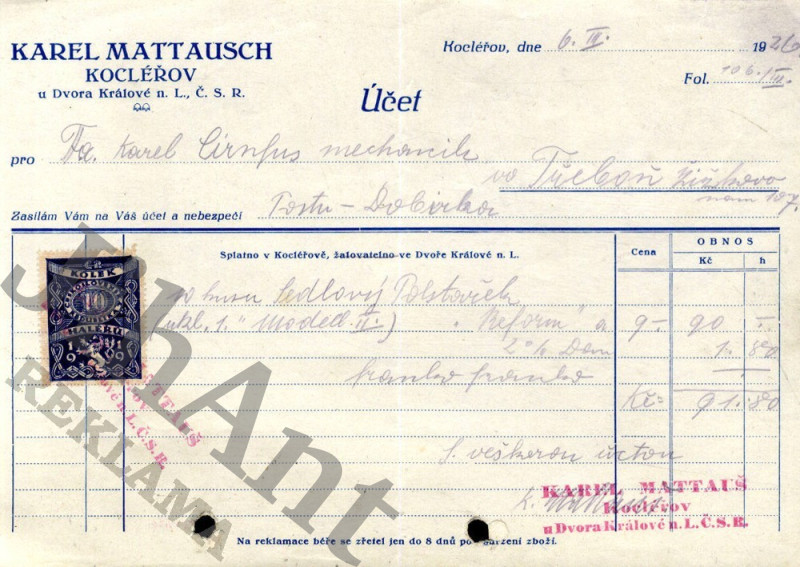 KAREL MATTAUSCH
KOCLÉŘOV
u Dvora Králové n. L., Č. S. R.
Kocléřov, dne 6. III. 1926
Fol. 106/III.
Účet
pro Fa. Karel Cirnfus mechanik
ve Třeboň Žižkovo
nám 107.
Zasílám Vám na Váš účet a nebezpečí Poštu - Dobírka
Splatno v Kocléřově, žalovatelno ve Dvoře Králové n. L.
Cena
OBNOS
Kč h
KOLEK
10
HALÉŘŮ
1919
10 kusu Sedlový Polštářek
(vkl. "1." Modell II.) "Reform" a 9- 90 -
2% Dan 1. 80
franko franko
Kč= 91. 80
S veškerou úctou
K. Mattausch
KAREL MATTAUŠ
Kocléřov
u Dvora Králové n. L. Č.S.R.
MATTAUŠ
n. L. Č.S.R.
Na reklamace béře se zřetel jen do 8 dnů po zboží.
JohAnt
REKLAMA